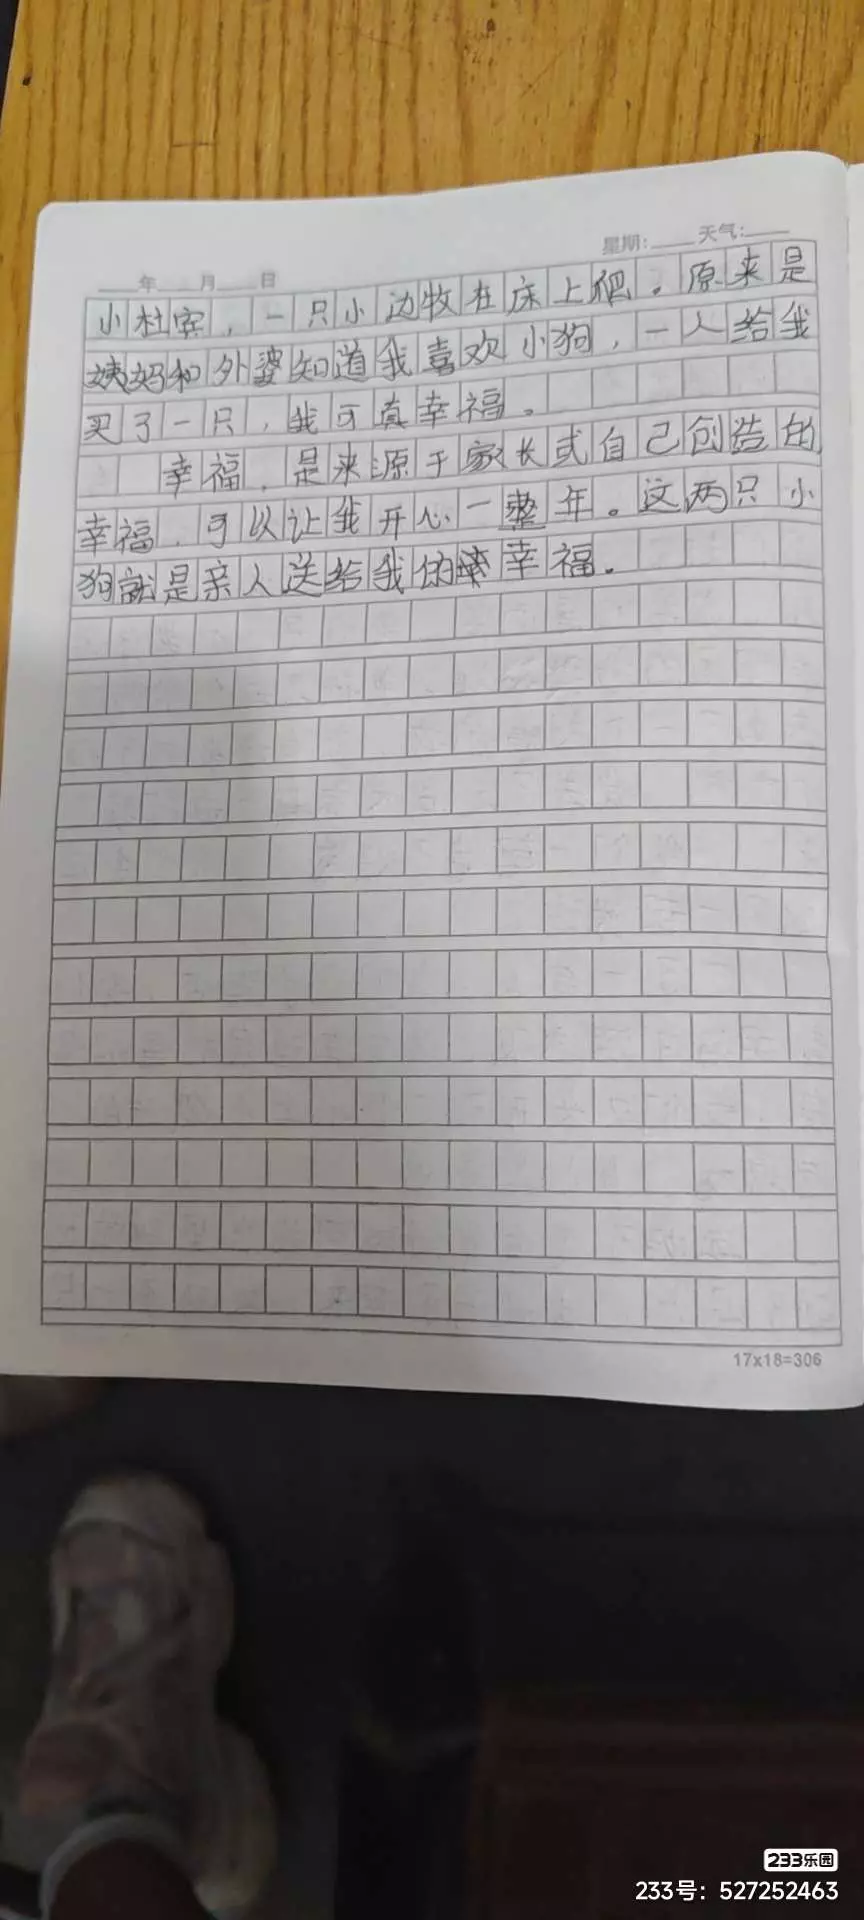 年 月 日 星期: 天气:
小杜宾，一只小边牧在床上爬。原来是
姨妈和外婆知道我喜欢小狗，一人给我
买了一只，我可真幸福。
幸福，是来源于家长或自己创造的
幸福，可以让我开心一整年。这两只小
狗就是亲人送给我的幸福。
17x18=306
233乐园
233号：527252463